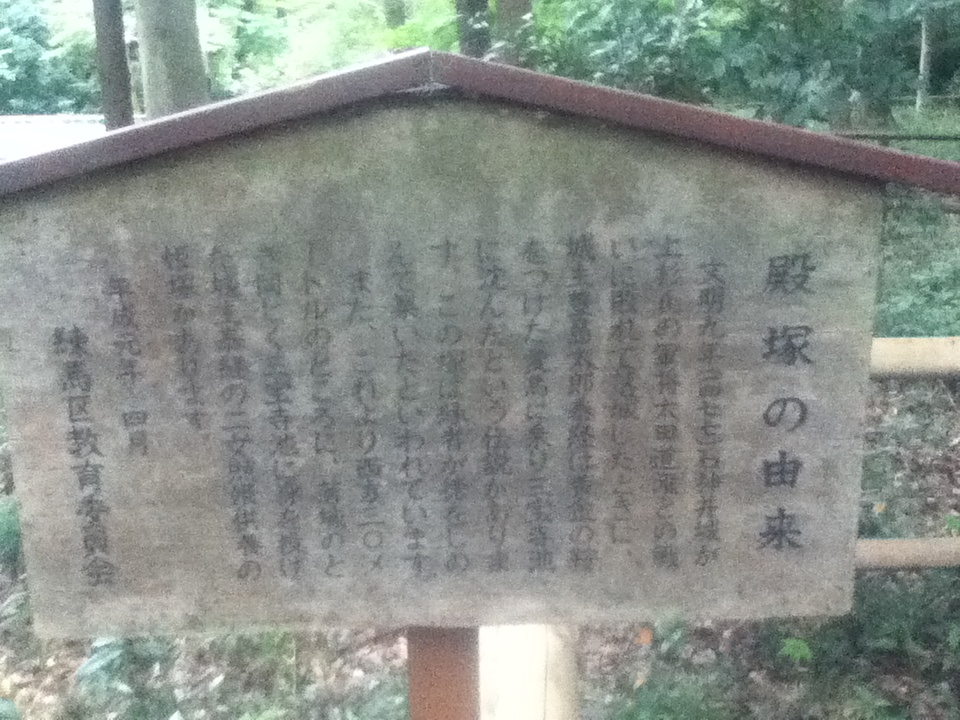 殿塚の由来
文明九年(一四七七)石神井城が
上杉氏の軍将太田道灌との戦
いに敗れて落城したときに、
城主豊島太郎泰経は黄金の鞍
をつけた愛馬に乗り三宝寺池
に沈んだという伝説がありま
す。この塚は昔がしの
んで築いたといわれています。
また、これより西方二〇メ
ートルのところに、落城のと
き同じく三宝寺池に身を投げ
た城主泰経の二女照姫供養の
姫塚があります
平成元年 四月
練馬区教育委員会